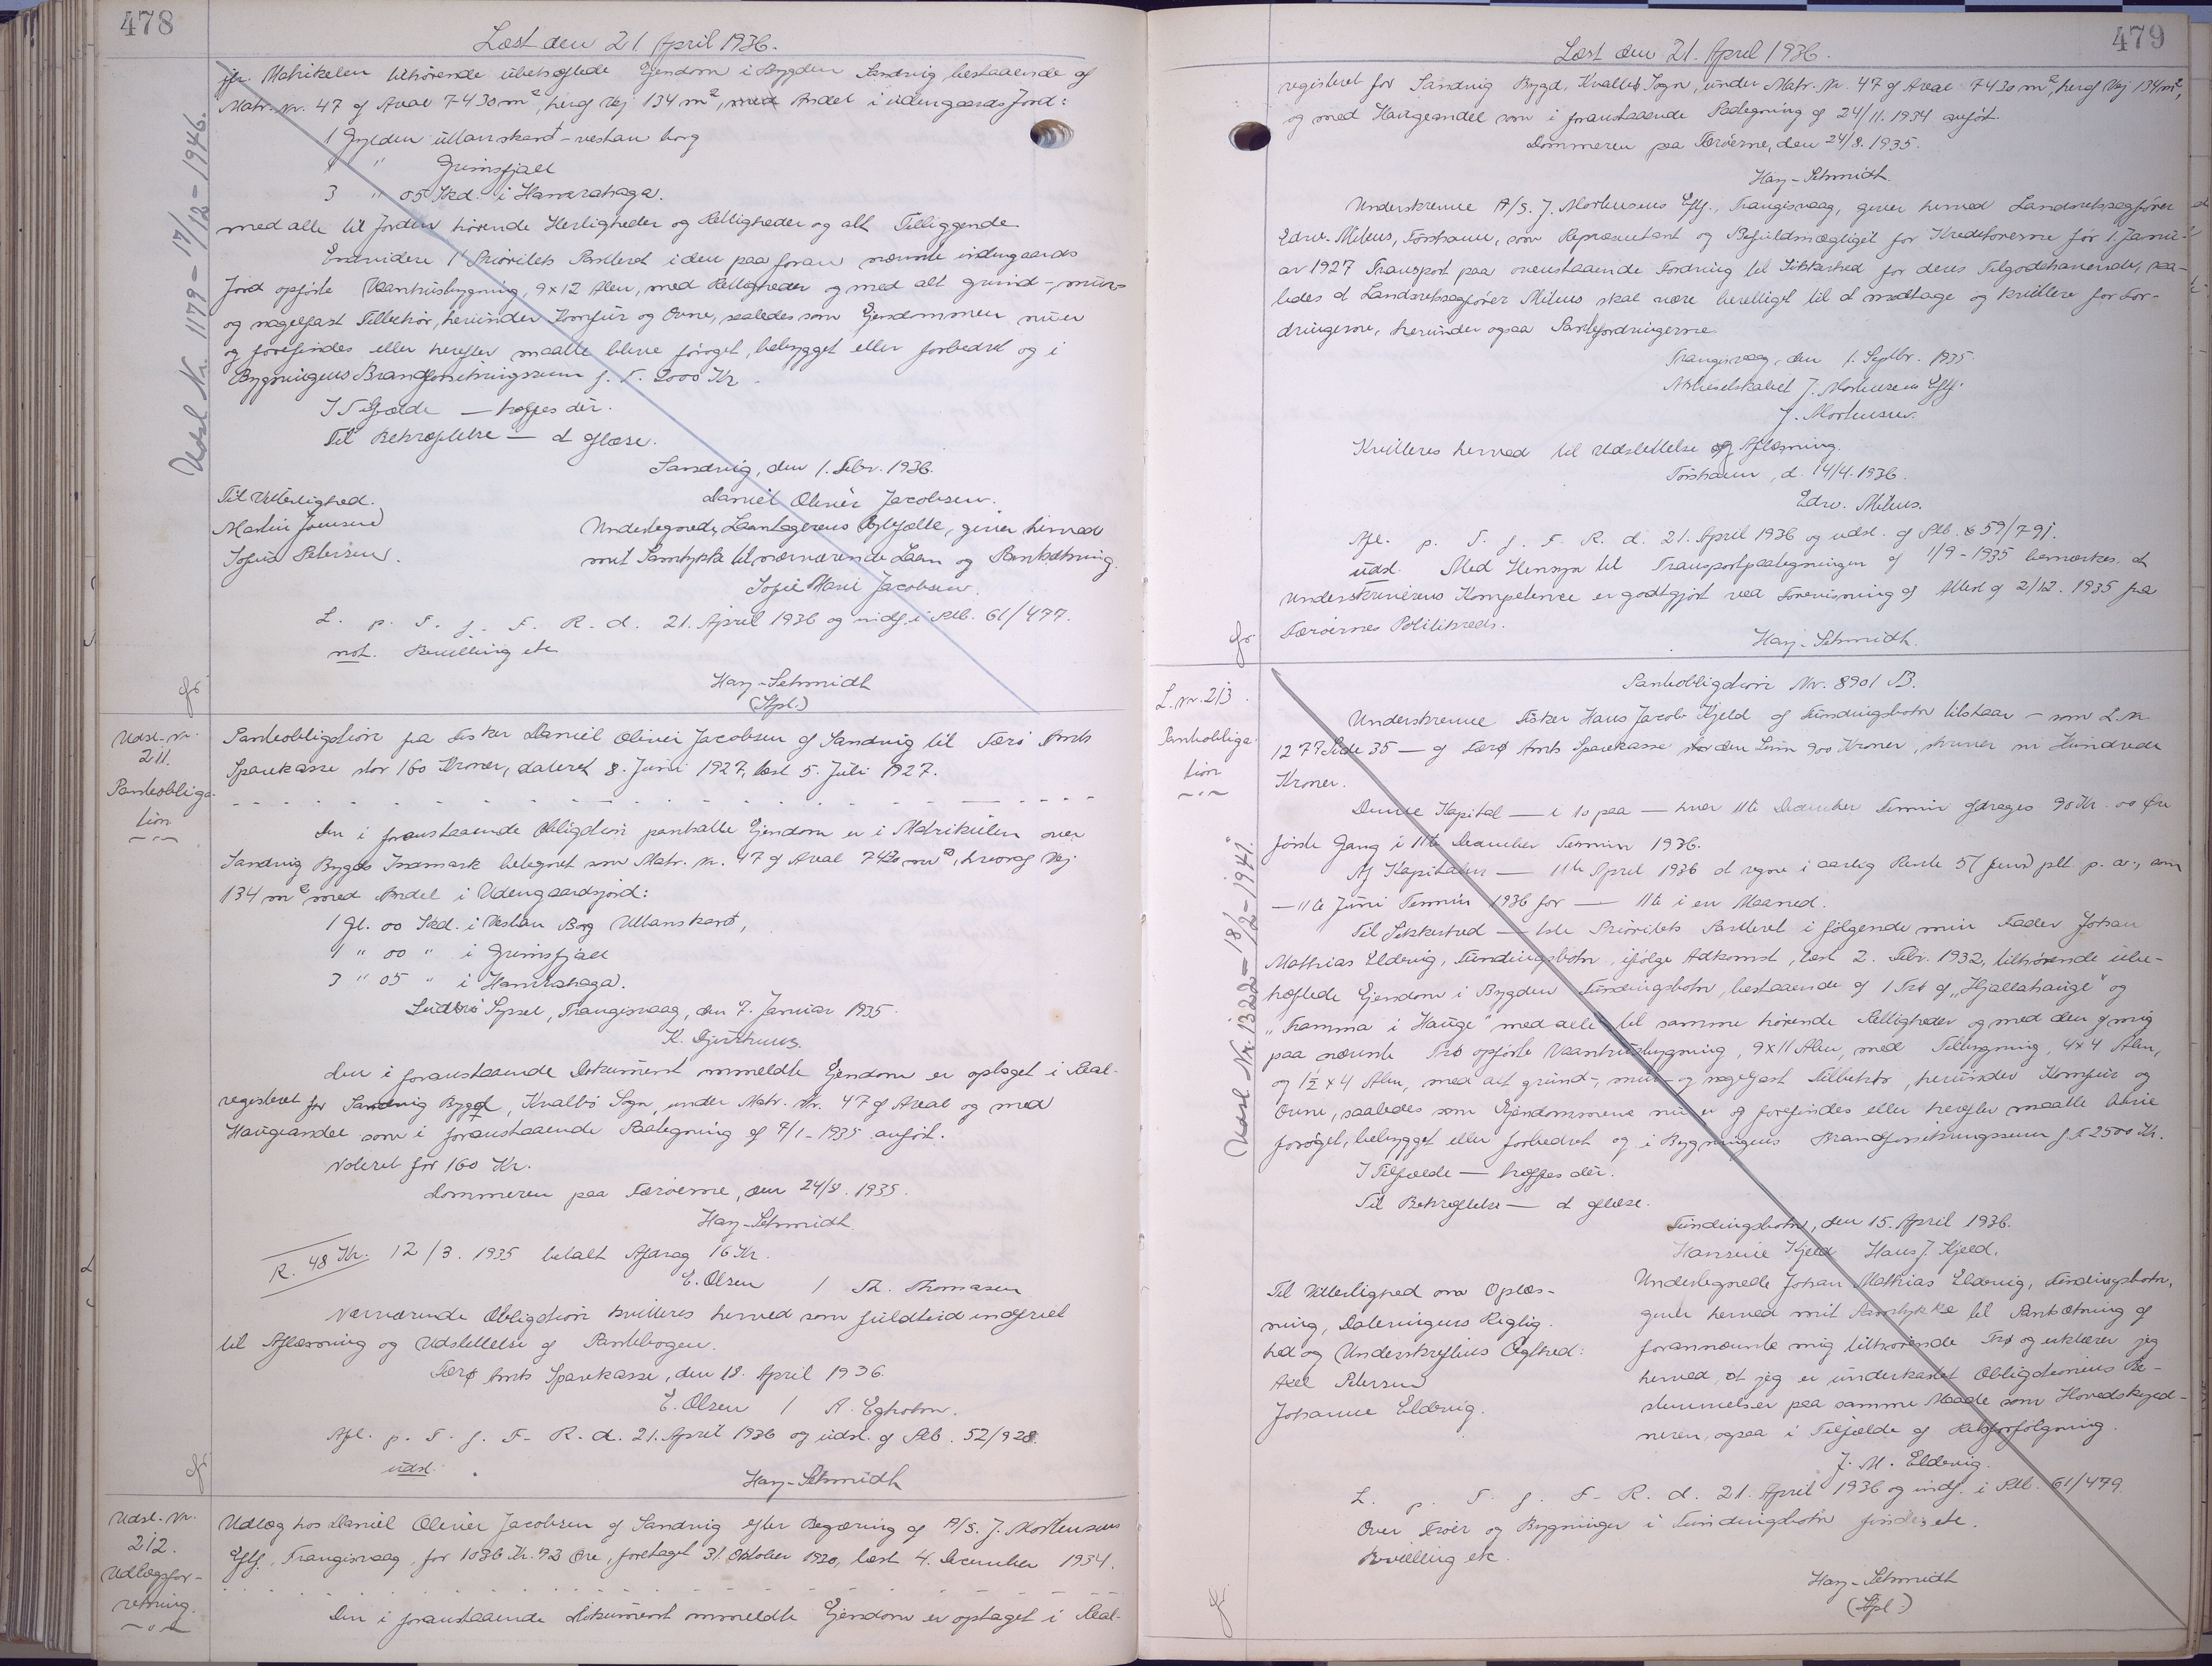 478
Læst den 21. April 1936.
jfr. Matrikelen tilhørende ubehæftede Ejendom i Bygden Sandvig bestaaende af
Matr. Nr. 47 af Areal 7430 m², heraf Vej 134 m², med Andel i udengaards Jord:
1 Gylden ullanskard - vestan borg
1 " Grimsfjall
3 " 05 Skd. i Hamrahaga.
med alle til Jorden hørende Herligheder og Rettigheder og alt Tilliggende.
Endvidere 1 Prioritets Panteret i den paa foran nævnte indengaards
Jord opførte Vaaningsbygning, 9x12 Alen, med Rettigheder og med alt grund-, mur-
og nagelfast Tilbehør, herunder Komfur og Ovne, saaledes som Ejendommen nu er
og forefindes eller herefter maatte blive forøget, bebygget eller forbedret og i
Bygningens Brandforsikringssum f. T. 2000 Kr.
I Tilfælde — træffes dér.
Til Bekræftelse — at aflæse.
Sandvig, den 1. Febr. 1936.
Til Vitterlighed. Daniel Oliver Jacobsen.
Martin Joensen Undertegnede, Laantagerens Ægtefælle, giver herved
Sofus Petersen. mit Samtykke til nærværende Laan og Pantsætning.
Sofie Marie Jacobsen.
L. p. T. f. F. R. d. 21. April 1936 og indf. i Ptb. 61/477.
not. Bevilling etc
Hay-Schmidt
(Stpl.)
Udsl. Nr. 1179 - 17/12 - 1946.
Udsl. Nr.
211.
Pantobliga-
tion
Pantobligation fra Fisker Daniel Oliver Jacobsen af Sandvig til Færø Amts
Sparekasse stor 160 Kroner, dateret 8. Juni 1927, læst 5. Juli 1927.
Den i foranstaaende Obligation pantsatte Ejendom er i Matrikulen over
Sandvig Bygds Indmark betegnet som Matr. Nr. 47 af Areal 7430 m², hvoraf Vej
134 m² med Andel i Udengaardsjord:
1 Gl. 00 Skd. i Vestan Borg Ullanskard,
1 " 00 " i Grimsfjall
3 " 05 " i Hamrahaga.
Suderø Syssel, Trangisvaag, den 7. Januar 1935.
K. Djurhuus.
Den i foranstaaende Dokument ommeldte Ejendom er optaget i Real-
registeret for Sandvig Bygd, Kvalbø Sogn, under Matr. Nr. 47 af Areal og med
Haugeandel som i foranstaaende Paategning af 7/1-1935 anført.
Noteret for 160 Kr.
Dommeren paa Færøerne, den 24/8. 1935.
Hay-Schmidt
R. 48 Kr. 12/3. 1935 betalt Afdrag 16 Kr.
E. Olsen / Th. Thomasen
Nærværende Obligation kvitteres herved som fuldtud indfriet
til Aflæsning og Udslettelse af Pantebogen.
Færø Amts Sparekasse, den 18. April 1936.
E. Olsen / A. Egholm.
Afl. p. T. f. F. R. d. 21. April 1936 og udsl. af Ptb. 52/928.
udsl.
Hay-Schmidt
Udsl. Nr.
212.
Udlægsfor-
retning.
Udlæg hos Daniel Oliver Jacobsen af Sandvig efter Begæring af A/S. J. Mortensens
Eftf., Trangisvaag, for 1036 Kr. 93 Øre, foretaget 31. Oktober 1930, læst 4. December 1934.
Den i foranstaaende Dokument ommeldte Ejendom er optaget i Real-
479
Læst den 21. April 1936.
registeret for Sandvig Bygd, Kvalbø Sogn, under Matr. Nr. 47 af Areal 7430 m², heraf Vej 134 m²,
og med Haugeandel som i foranstaaende Paategning af 24/11. 1934 anført.
Dommeren paa Færøerne, den 24/8. 1935.
Hay-Schmidt.
Underskrevne A/S. J. Mortensens Eftf., Trangisvaag, giver herved Landsretssagfører
Edw. Mitens, Tórshavn, som Repræsentant og Befuldmægtiget for Kreditorerne før 1. Janu-
ar 1927 Transport paa ovenstaaende Fordring til Sikkerhed for deres Tilgodehavende, saa-
ledes at Landsretssagfører Mitens skal være berettiget til at modtage og kvittere for For-
dringerne, herunder ogsaa Pantefordringerne.
Trangisvaag, den 1. Septbr. 1935.
Aktieselskabet J. Mortensens Eftf.
J. Mortensen.
Kvitteres herved til Udslettelse og Aflæsning.
Tórshavn, d. 14/4. 1936.
Edw. Mitens.
Afl. p. T. f. F. R. d. 21. April 1936 og udsl. af Ptb. 59/791.
udsl. Med Hensyn til Transportpaategningen af 1/9-1935 bemærkes, at
Underskriverens Kompetence er godtgjort ved Forevisning af Attest af 2/12. 1935 fra
Færøernes Politikreds.
Hay-Schmidt.
L. Nr. 213.
Pantobliga-
tion
Udsl. Nr. 1322 - 18/12 - 1941.
Pantobligation Nr. 8901 B.
Underskrevne Fisker Hans Jacob Kjeld af Fundingsbotn tilstaar - som L. Nr.
1277 Side 35 - af Færø Amts Sparekasse stor den Sum 900 Kroner, skriver ni Hundrede
Kroner.
Denne Kapital — i 10 paa — hver 11te December Termin afdrages 90 Kr. 00 Øre
første Gang i 11te December Termin 1936.
Af Kapitalen — 11te April 1936 at regne i aarlig Rente 5 (fem) pCt. p. a., som
— 11te Juni Termin 1936 for — 11te i en Maaned.
Til Sikkerhed — 1ste Prioritets Panteret i følgende min Fader Johan
Mathias Eldevig, Fundingsbotn, ifølge Adkomst, læst 2. Febr. 1932, tilhørende ube-
hæftede Ejendom i Bygden Fundingsbotn, bestaaende af 1 Trø af "Hjallahauge" og
"Framma i Hauge" med alle til samme hørende Rettigheder og med den af mig
paa nævnte Trø opførte Vaaningsbygning, 9x11 Alen, med Tilbygning, 4x4 Alen,
og 1½ x 4 Alen, med alt grund-, mur- og nagelfast Tilbehør, herunder Komfur og
Ovne, saaledes som Ejendommene nu er og forefindes eller herefter maatte blive
forøget, bebygget eller forbedret og i Bygningens Brandforsikringssum f. T. 2500 Kr.
I Tilfælde — træffes dér.
Til Bekræftelse — at aflæse.
Fundingsbotn, den 15. April 1936.
Hansine Kjeld Hans J. Kjeld.
Til Vitterlighed om Oplæs-
ning, Dateringens Rigtig-
hed og Underskriftens Ægthed:
Axel Petersen
Johanne Eldevig.
Undertegnede Johan Mathias Eldevig, Fundingsbotn,
giver herved mit Samtykke til Pantsætning af
forannævnte mig tilhørende Trø og erklærer jeg
herved, at jeg er underkastet Obligationens Be-
stemmelser paa samme Maade som Hovedskyld-
neren, ogsaa i Tilfælde af Retsforfølgning.
J. M. Eldevig.
L. p. T. f. F. R. d. 21. April 1936 og indf. i Ptb. 61/479.
Over Trøer og Bygninger i Fundingsbotn findes etc.
Bevilling etc.
Hay-Schmidt
(Stpl.)